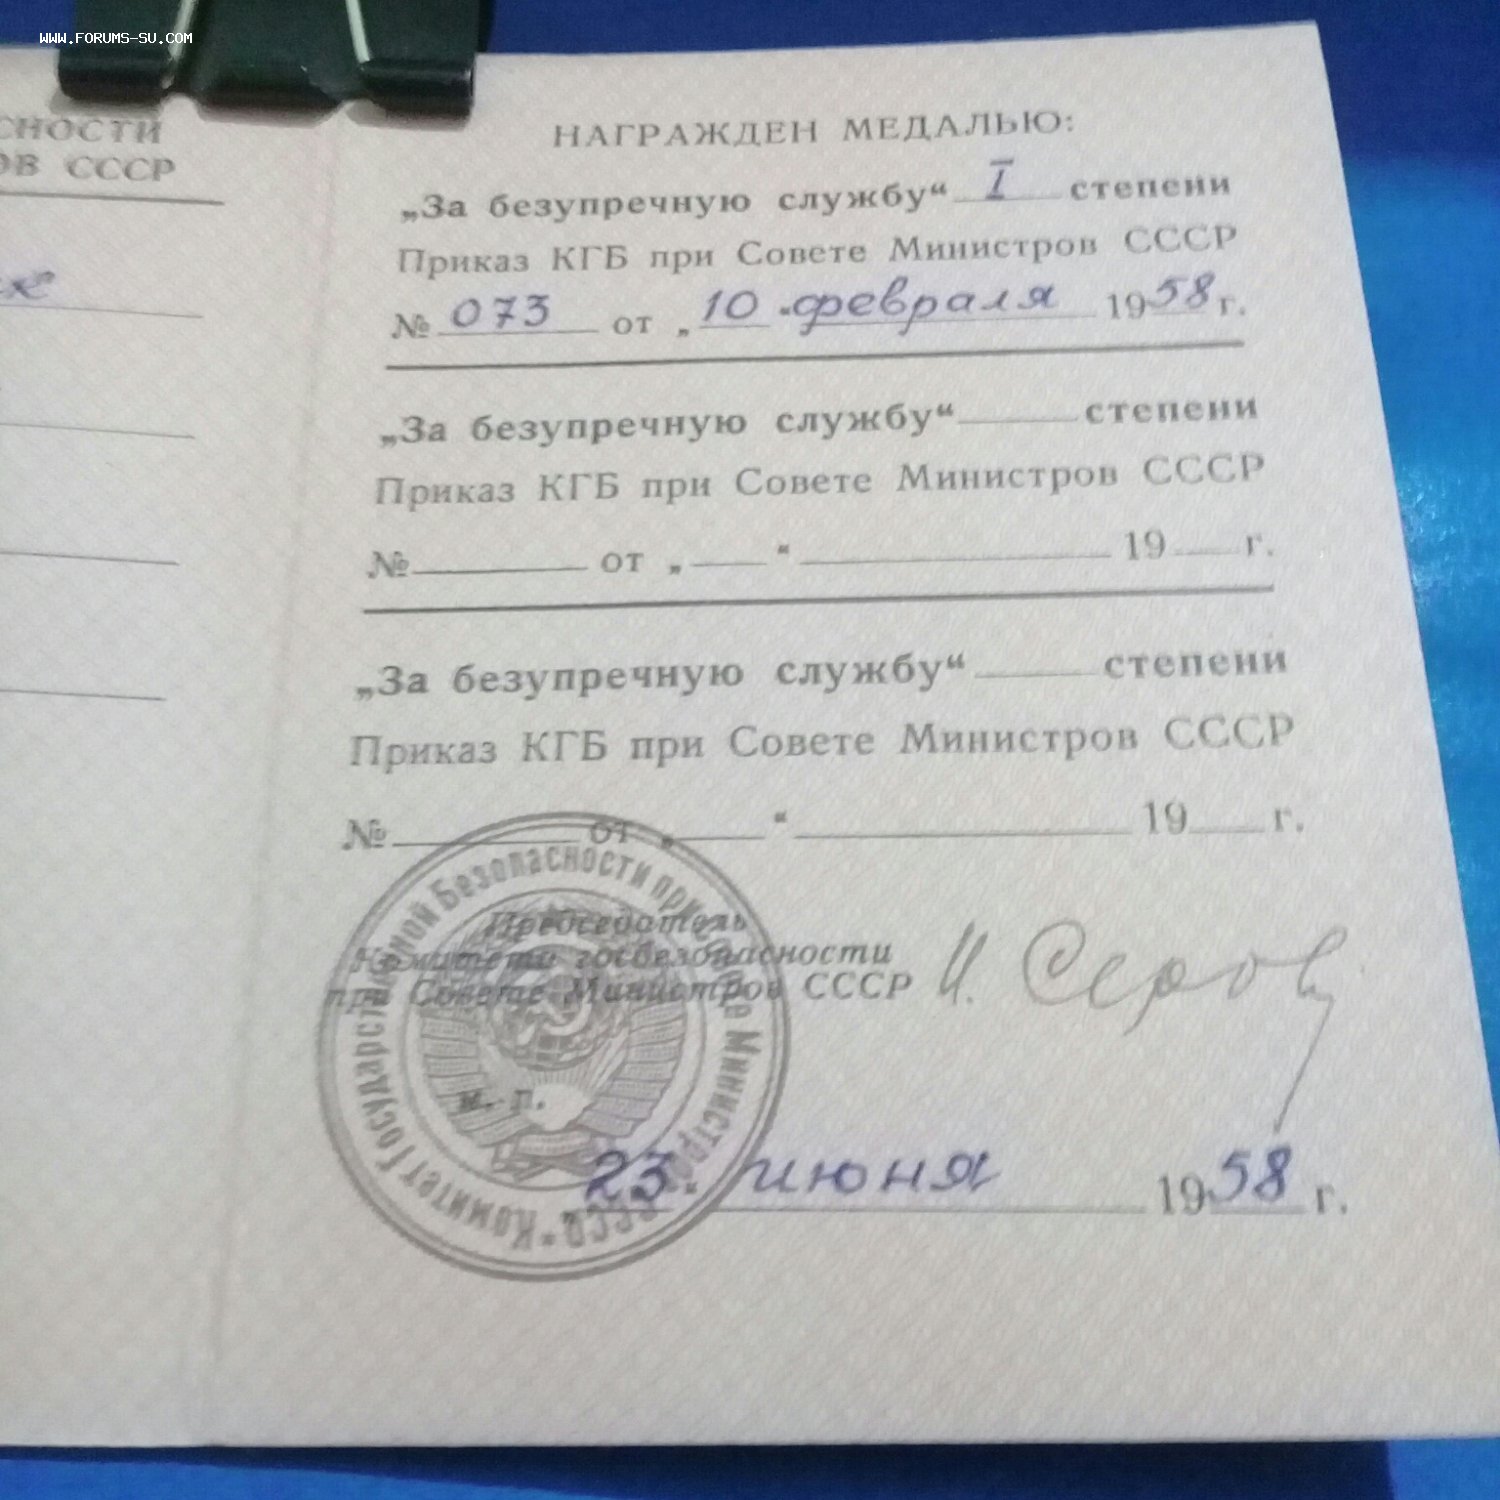 WWW.FORUMS-SU.COM
СНОСТИ
ОВ СССР
НАГРАЖДЕН МЕДАЛЬЮ:
„За безупречную службу“ I степени
Приказ КГБ при Совете Министров СССР
№ 073 от „10“ февраля 1958 г.
„За безупречную службу“ степени
Приказ КГБ при Совете Министров СССР
№ от „ “ 19 г.
„За безупречную службу“ степени
Приказ КГБ при Совете Министров СССР
№ от „ “ 19 г.
Председатель
Комитета госбезопасности
при Совете Министров СССР И. Серов
м. п.
„23“ июня 1958 г.
Комитет Государственной Безопасности при Совете Министров СССР *